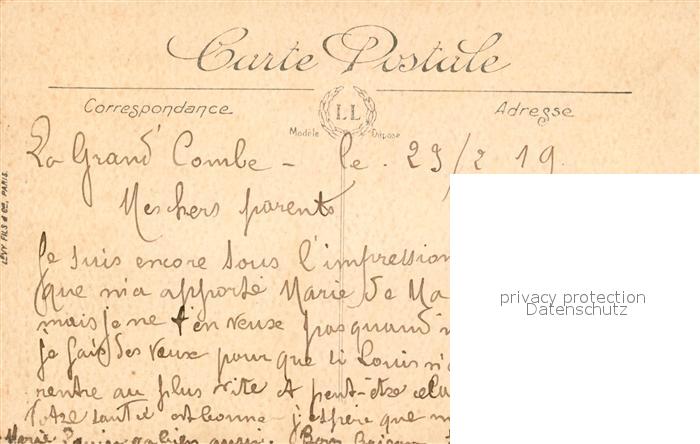 Carte Postale
Correspondance
Adresse
LL
Modèle Déposé
LEVY FILS & Cie, PARIS.
La Grand' Combe - le. 29/7 19.
Mes chers parents
Je suis encore sous l'impression
que m'a apporté Marie de Ma
mais je ne t'en veux pas quand
je fais des vœux pour que si Louis n'
rentre au plus vite et peut-être
Votre santé est bonne - j'espère que
Marie
Bons Baisers
privacy protection
Datenschutz